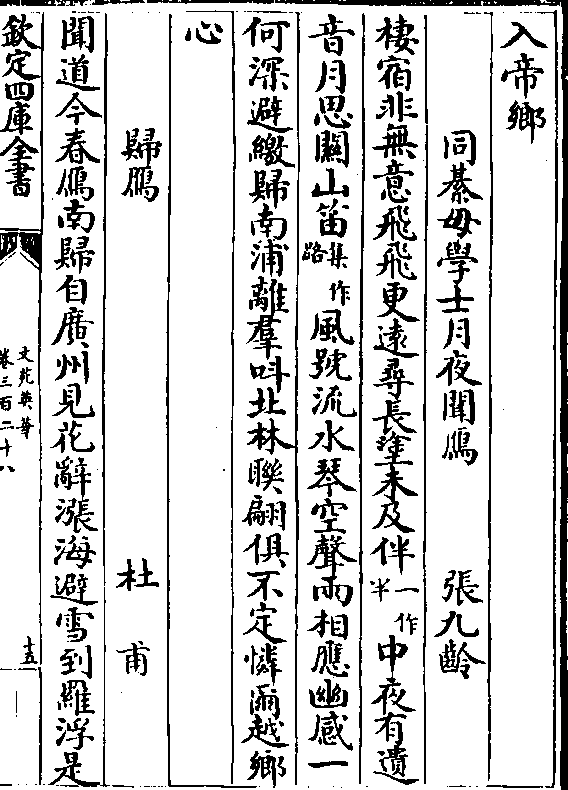 入帝鄉
同綦毋學士月夜聞鴈 張九齡
棲宿非無意飛飛更遠尋長塗未及伴一作半中夜有遺
音月思關山笛集作路風號流水琴空聲兩相應幽感一
何深避繳歸南浦離羣呌北林聮翩俱不定憐爾越鄉
心
歸鴈 杜甫
聞道今春鴈南歸自廣州見花辭漲海避雪到羅浮是
欽定四庫全書
文苑英華
卷三百二十八
十五